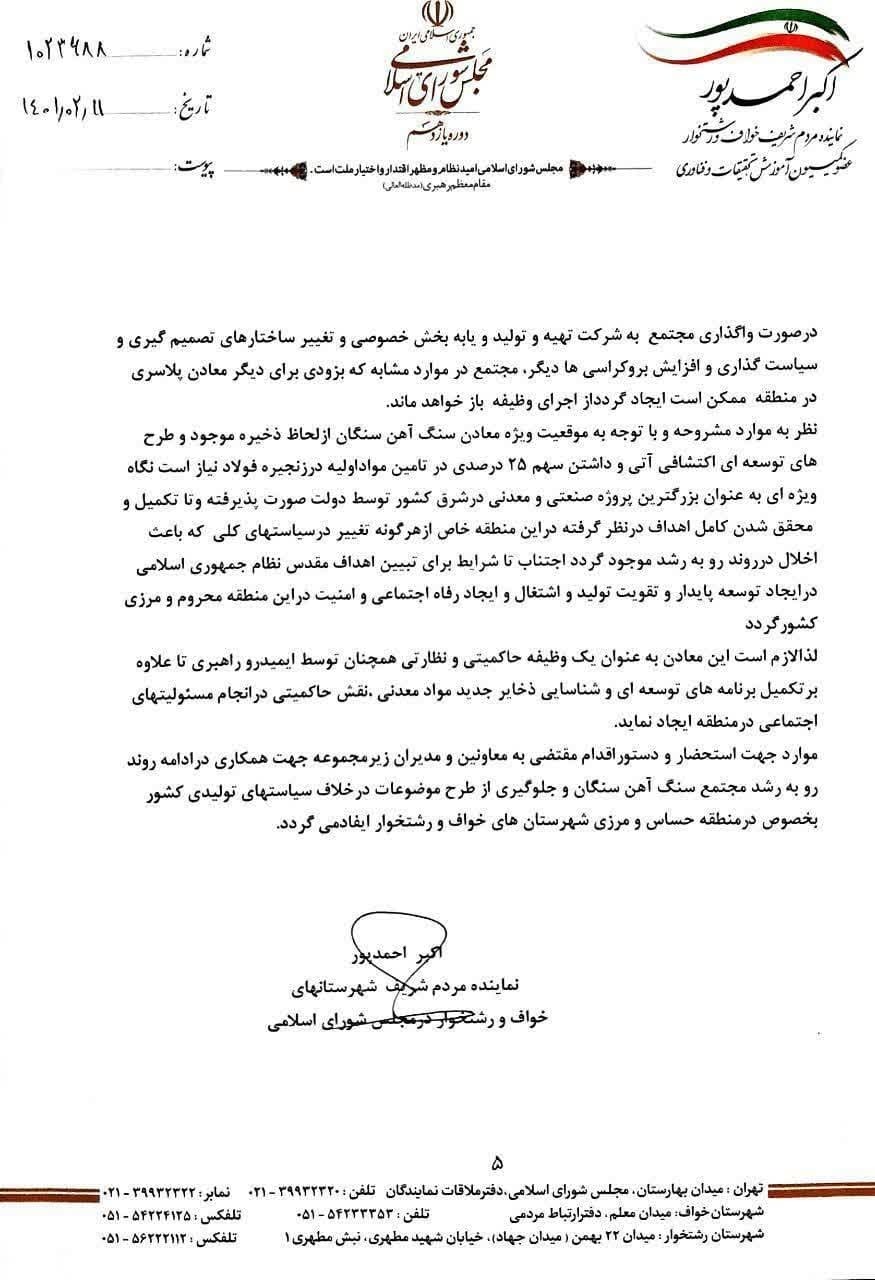 جمهوری اسلامی ایران
مجلس شورای اسلامی
دوره یازدهم
مجلس شورای اسلامی امید نظام و مظهر اقتدار و اختیار ملت است.
مقام معظم رهبری (مدظله العالی)
اکبر احمدپور
نماینده مردم شریف خواف و رشتخوار
عضو کمیسیون آموزش تحقیقات و فناوری
شماره: ۱۰۲۳۶۸۸
تاریخ: ۱۴۰۱/۰۲/۱۱
پیوست:
درصورت واگذاری مجتمع به شرکت تهیه و تولید و یابه بخش خصوصی و تغییر ساختارهای تصمیم گیری و
سیاست گذاری و افزایش بروکراسی ها دیگر، مجتمع در موارد مشابه که بزودی برای دیگر معادن پلاسری
در منطقه ممکن است ایجاد گردداز اجرای وظیفه باز خواهد ماند.
نظر به موارد مشروحه و با توجه به موقعیت ویژه معادن سنگ آهن سنگان ازلحاظ ذخیره موجود و طرح
های توسعه ای اکتشافی آتی و داشتن سهم ۲۵ درصدی در تامین مواداولیه درزنجیره فولاد نیاز است نگاه
ویژه ای به عنوان بزرگترین پروژه صنعتی و معدنی درشرق کشور توسط دولت صورت پذیرفته وتا تکمیل و
محقق شدن کامل اهداف درنظر گرفته دراین منطقه خاص ازهرگونه تغییر درسیاستهای کلی که باعث
اخلال درروند رو به رشد موجود گردد اجتناب تا شرایط برای تبیین اهداف مقدس نظام جمهوری اسلامی
درایجاد توسعه پایدار و تقویت تولید و اشتغال و ایجاد رفاه اجتماعی و امنیت دراین منطقه محروم و مرزی
کشورگردد
لذالازم است این معادن به عنوان یک وظیفه حاکمیتی و نظارتی همچنان توسط ایمیدرو راهبری تا علاوه
برتکمیل برنامه های توسعه ای و شناسایی ذخایر جدید مواد معدنی ،نقش حاکمیتی درانجام مسئولیتهای
اجتماعی درمنطقه ایجاد نماید.
موارد جهت استحضار و دستوراقدام مقتضی به معاونین و مدیران زیرمجموعه جهت همکاری درادامه روند
رو به رشد مجتمع سنگ آهن سنگان و جلوگیری از طرح موضوعات درخلاف سیاستهای تولیدی کشور
بخصوص درمنطقه حساس و مرزی شهرستان های خواف و رشتخوار ایفادمی گردد.
اکبر احمدپور
نماینده مردم شریف شهرستانهای
خواف و رشتخوار درمجلس شورای اسلامی
۵
تهران : میدان بهارستان، مجلس شورای اسلامی،دفترملاقات نمایندگان تلفن : ۳۹۹۳۲۳۲۰ - ۰۲۱ نمابر : ۳۹۹۳۲۳۲۲ - ۰۲۱
شهرستان خواف: میدان معلم، دفترارتباط مردمی تلفن : ۵۴۲۳۳۳۵۳ - ۰۵۱ تلفکس : ۵۴۲۲۴۱۲۵ - ۰۵۱
شهرستان رشتخوار : میدان ۲۲ بهمن ( میدان جهاد)، خیابان شهید مطهری، نبش مطهری ۱ تلفکس : ۵۶۲۲۲۱۱۲ - ۰۵۱